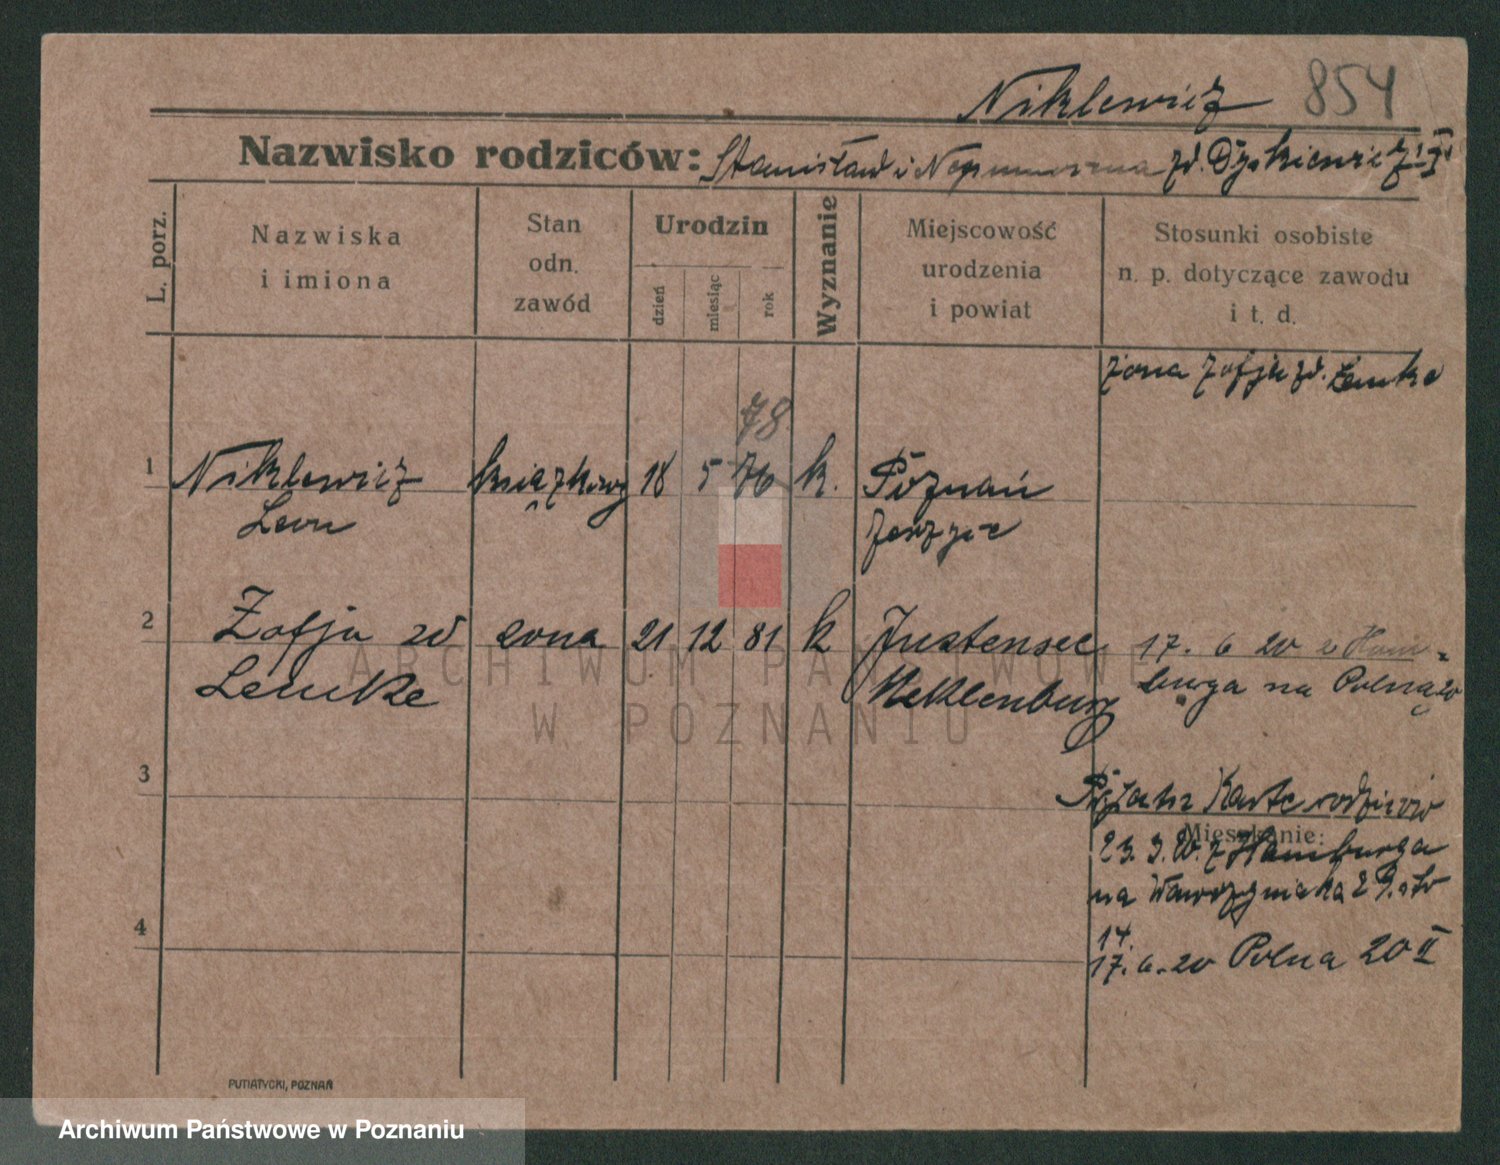 Niklewicz 854
Nazwisko rodziców: Stanisław i Nepomucena zd. Dyskiewicz
L. porz.
Nazwiska
i imiona
Stan
odn.
zawód
Urodzin
dzień
miesiąc
rok
Wyznanie
Miejscowość
urodzenia
i powiat
Stosunki osobiste
n. p. dotyczące zawodu
i t. d.
żona Zofja zd. Lemke
78
1 Niklewicz książkowy 18 5 76 k. Poznań
Leon Jerzyce
2 Zofja zd żona 21 12 81 k Justensee 17. 6 20 z Ham-
Lemke Meklenburg burga na Polną 20
3
Kartę rodziców
Mieszkanie:
23. 3. 20. z Hamburga
na Wawrzyniaka 29.
14.
17. 6. 20 Polna 20 II
4
PUTIATYCKI, POZNAŃ
ARCHIWUM PAŃSTWOWE
W POZNANIU
Archiwum Państwowe w Poznaniu